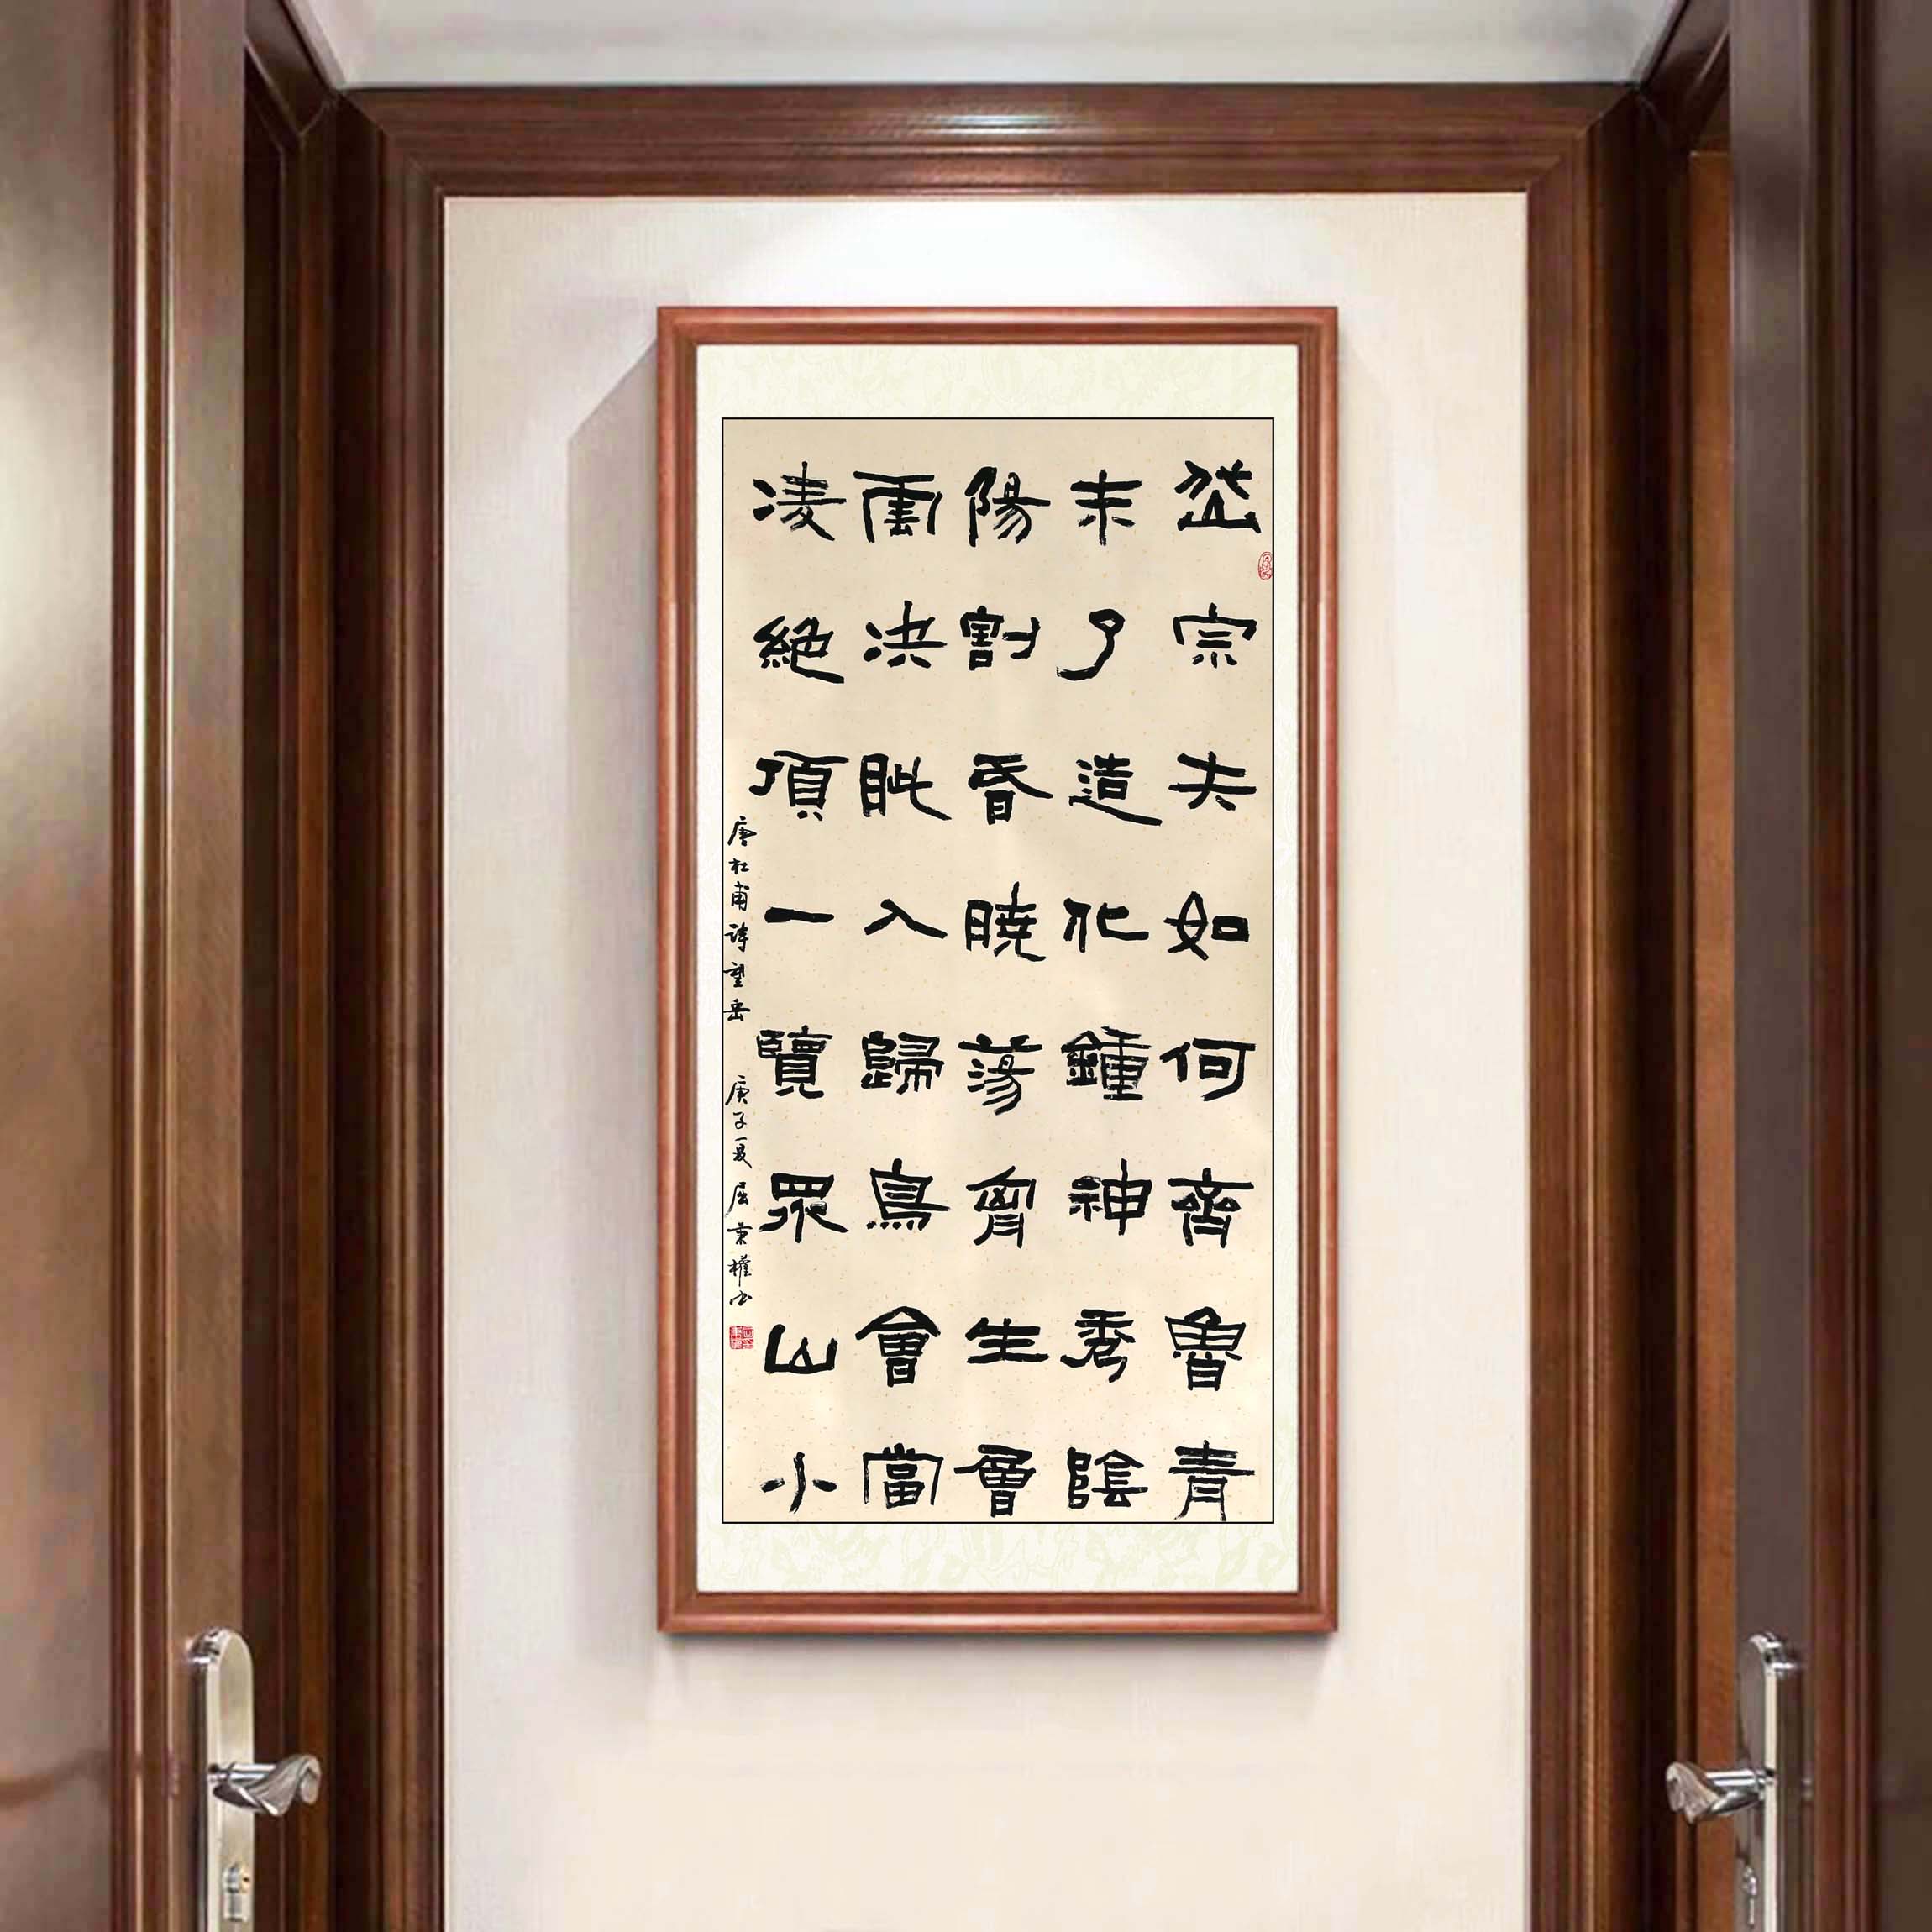 岱宗夫如何齊魯青
未了造化鍾神秀陰
陽割昏曉蕩胷生曾
雲決眦入歸鳥會當
凌絕頂一覽眾山小
唐杜甫詩望岳 庚子夏 屈秉權书